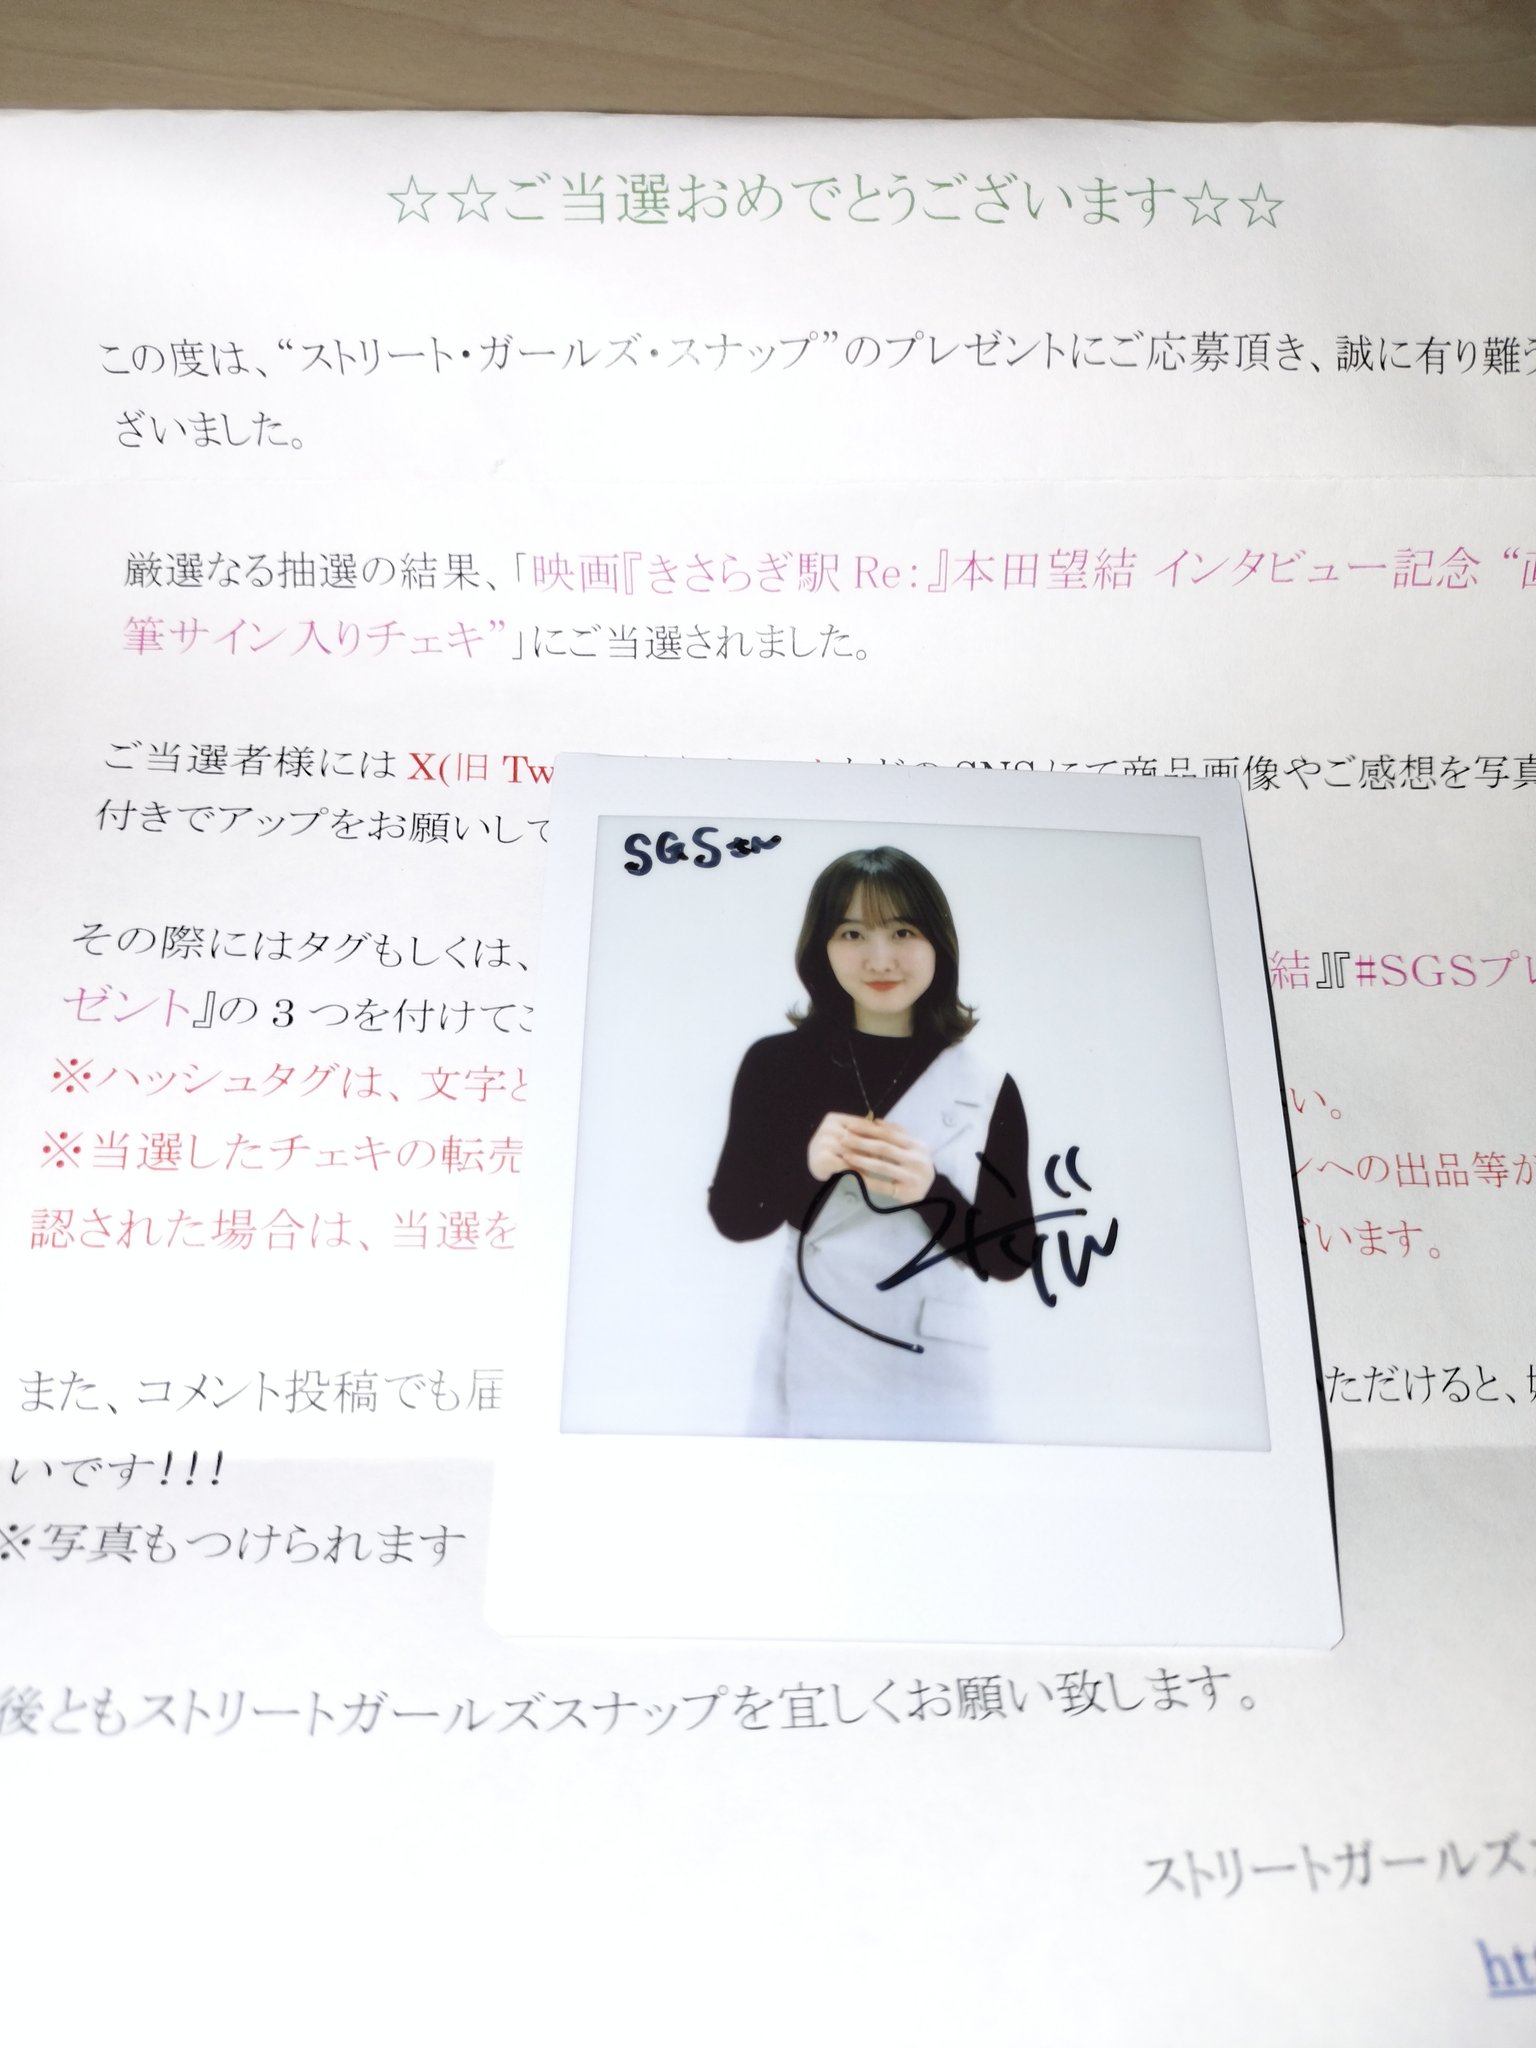 ☆☆ご当選おめでとうございます☆☆
この度は、“ストリート・ガールズ・スナップ”のプレゼントにご応募頂き、誠に有り難う
ざいました。
厳選なる抽選の結果、「映画『きさらぎ駅 Re:』本田望結 インタビュー記念 “
筆サイン入りチェキ”」にご当選されました。
ご当選者様には X(旧 Tw SNS にて商品画像やご感想を写真
付きでアップをお願いして
SGSさん
その際にはタグもしくは、 結』『#SGSプレ
ゼント』の 3 つを付けてご
※ハッシュタグは、文字と い。
※当選したチェキの転売 ンへの出品等が
認された場合は、当選を ざいます。
また、コメント投稿でも ただけると、
いです!!!
※写真もつけられます
後ともストリートガールズスナップを宜しくお願い致します。
ストリートガールズ
htt